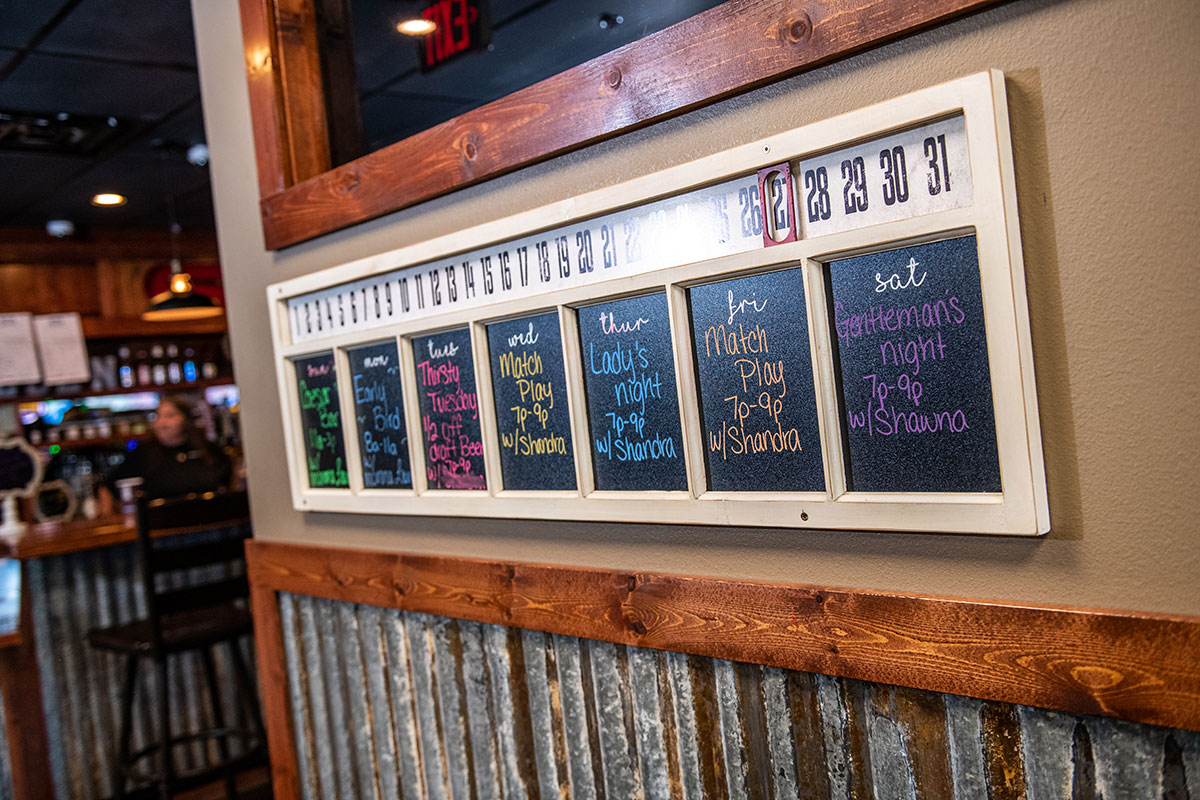 EXIT
1 2 3 4 5 6 7 8 9 10 11 12 13 14 15 16 17 18 19 20 21 22 26 27 28 29 30 31
sun
Bar
mon
Early
Bird
8a-11a
tues
Thirsty
Tuesday
1/2 off
draft Beer
wed
Match
Play
7p-9p
w/Shandra
thur
Lady's
night
7p-9p
w/Shandra
fri
Match
Play
7p-9p
w/Shandra
sat
Gentleman's
night
7p-9p
w/Shawna